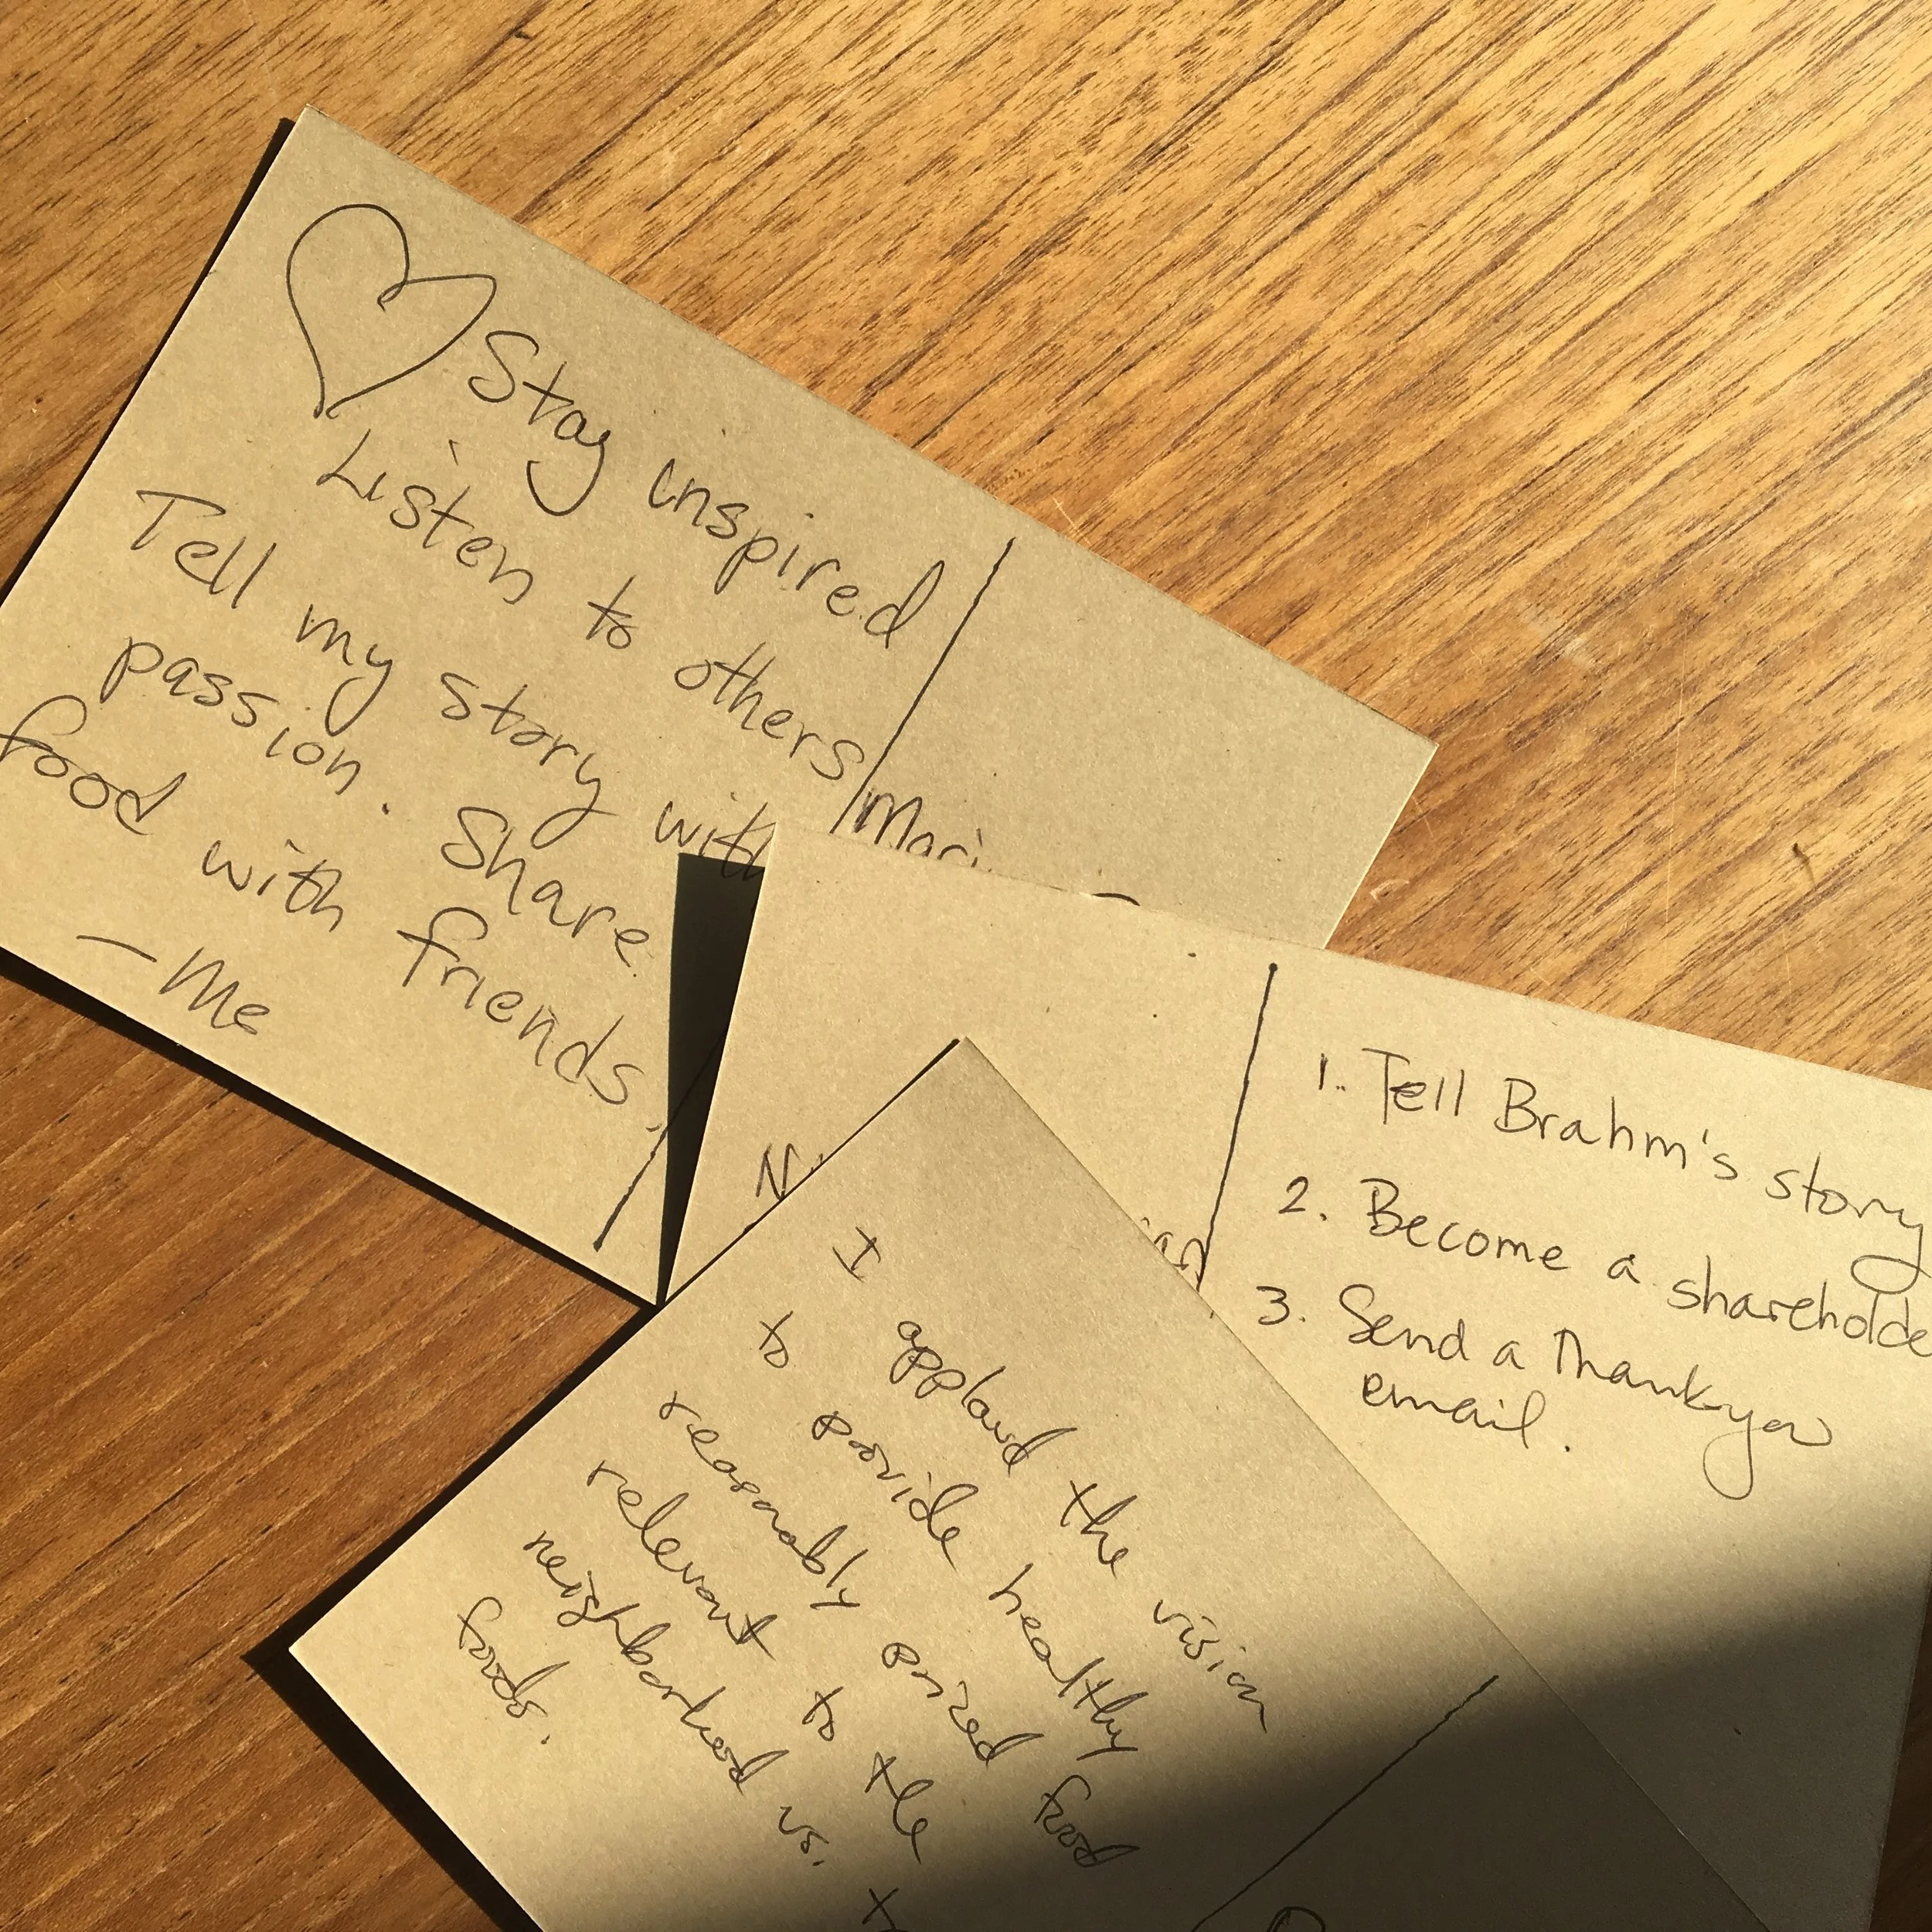 Stay inspired
Listen to others
Tell my story with
passion. Share
food with friends.
— Me
1. Tell Brahm's story
2. Become a
3. Send a Thank you
email.
I applaud the vision
to provide healthy
reasonably prized food
relevant to the
neighborhood vs.
foods.